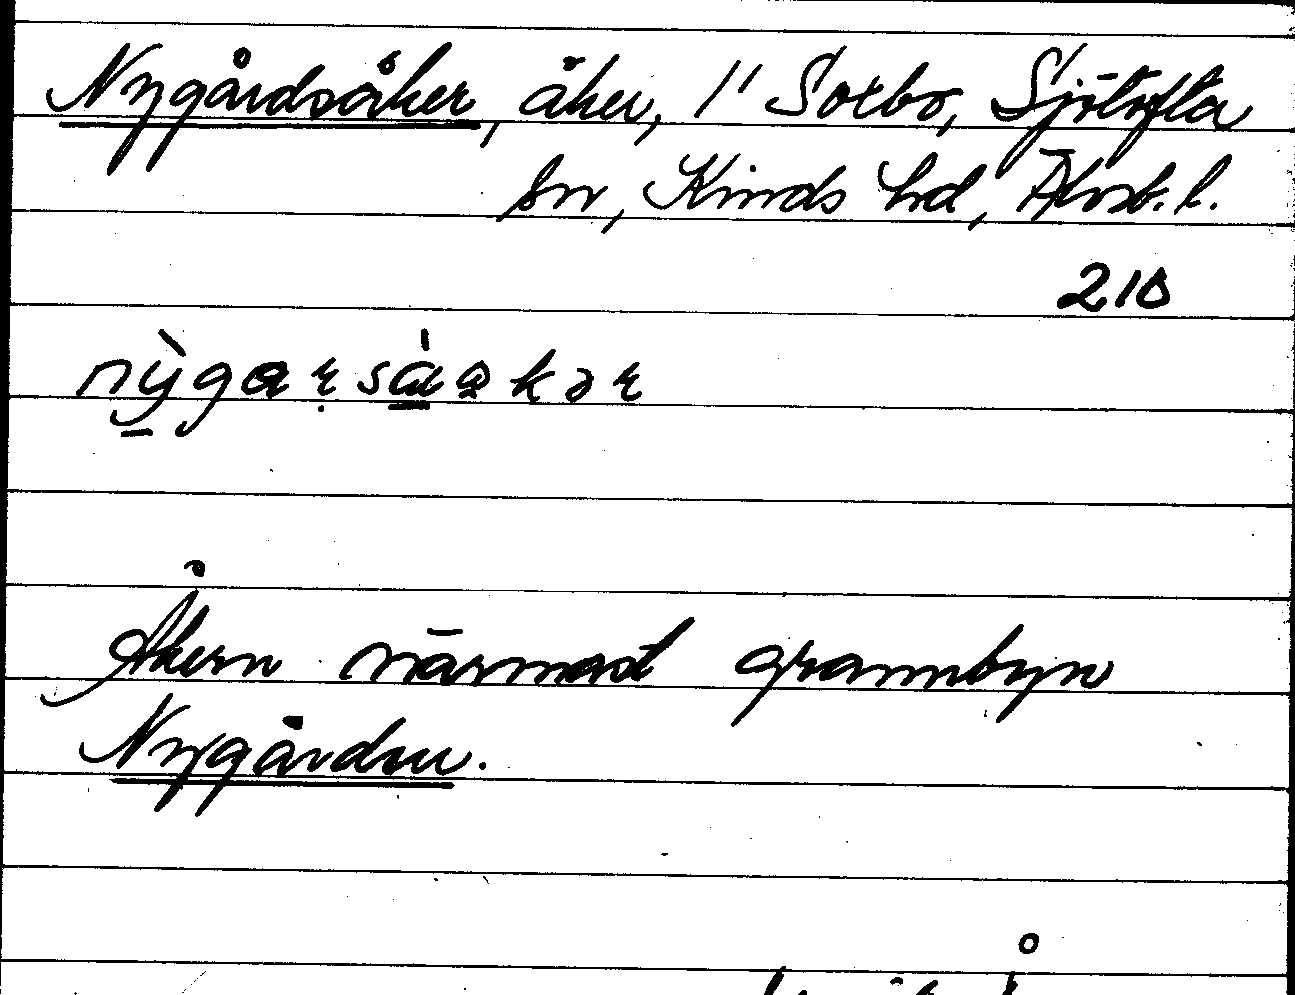 Nygårdsåker, åker, 1/1 Sotbo, Sjötofta
sn, Kinds hd, Älvsb. l.
210
nỳgarsàakər
Åkern närmast grannbyn
Nygården.